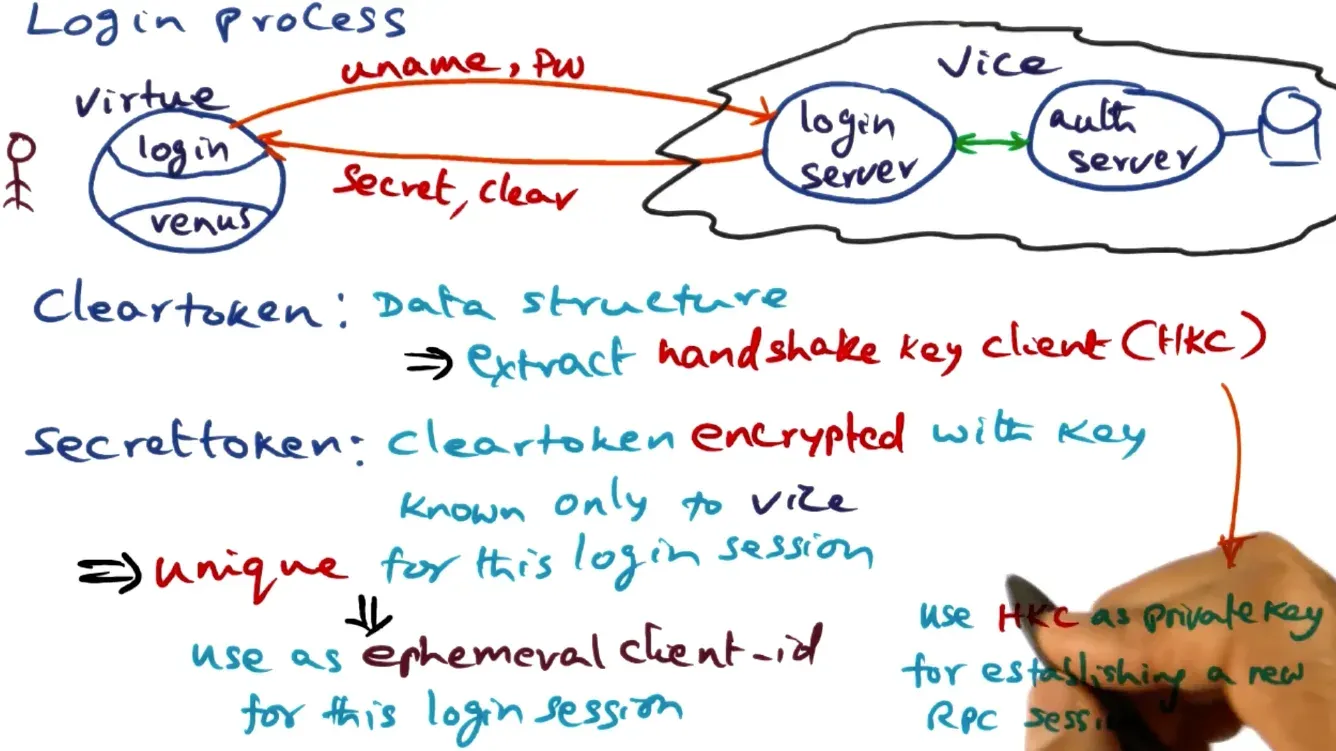 Login process
uname, pw
Vice
Virtue
login
login
server
auth
server
Secret, clear
venus
Cleartoken: Data structure
⇒ extract handshake key client (HKC)
Secrettoken: Cleartoken encrypted with key
known only to vice
⇒ unique for this login session
⇓
use as ephemeral client-id
for this login session
use HKC as private key
for establishing a new
RPC